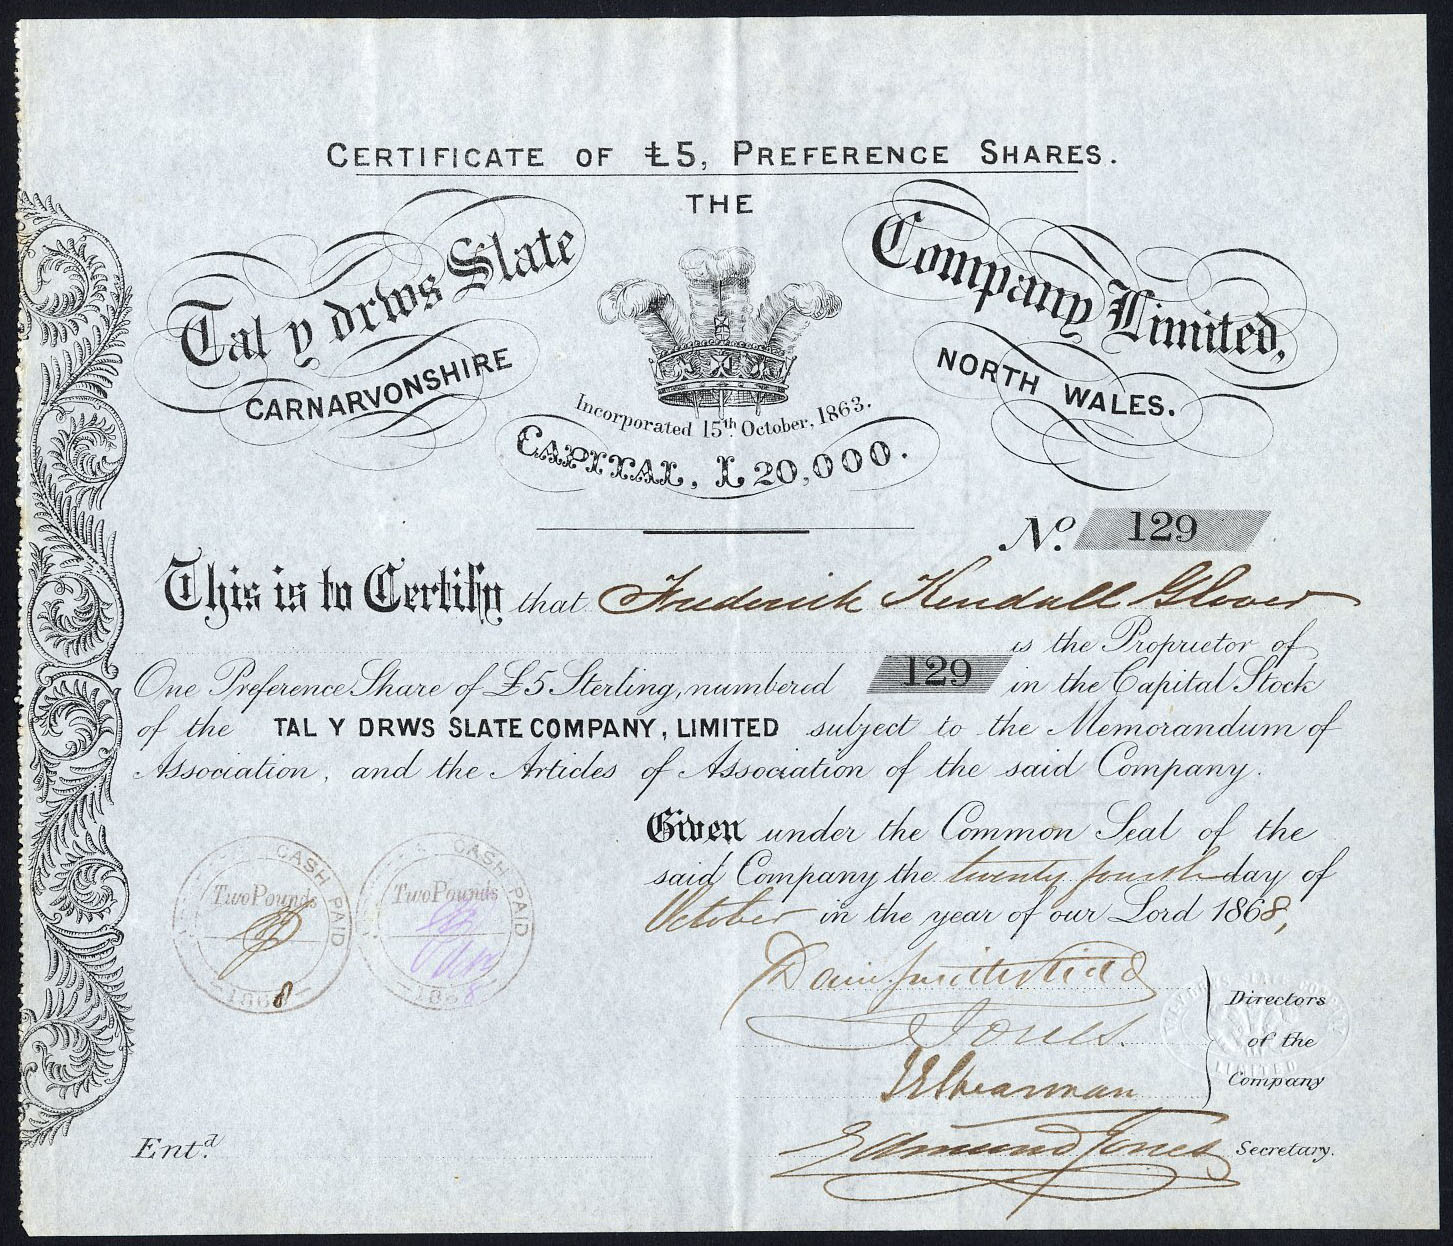 CERTIFICATE OF £5, PREFERENCE SHARES.
THE
Tal y drws Slate Company Limited,
CARNARVONSHIRE NORTH WALES.
Incorporated 15th October, 1863.
CAPITAL, £20,000.
No. 129
This is to Certify that Frederick Kendall Glover
is the Proprietor of
One Preference Share of £5 Sterling, numbered 129 in the Capital Stock
of the TAL Y DRWS SLATE COMPANY, LIMITED subject to the Memorandum of
Association, and the Articles of Association of the said Company.
Given under the Common Seal of the
said Company the twenty fourth day of
October in the year of our Lord 1868,
CASH PAID
Two Pounds
1868
CASH PAID
Two Pounds
1868
Jones.
Directors
of the
Company
LIMITED
Entd.
Edmund Jones Secretary.